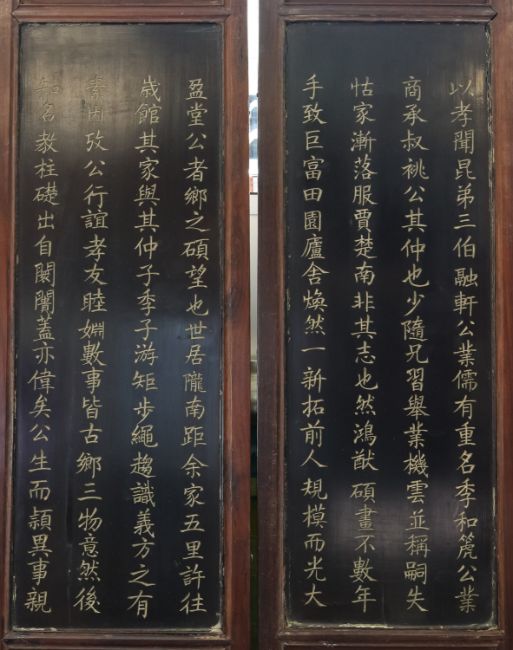 盈堂公者鄉之碩望也世居隴南距余家五里許往
歲館其家與其仲子季子游矩步繩趨識義方之有
素因攷公行誼孝友睦婣數事皆古鄉三物意然後
知名教柱礎出自闤闠蓋亦偉矣公生而穎異事親
以孝聞昆弟三伯融軒公業儒有重名季和箎公業
商承叔祧公其仲也少隨兄習舉業機雲並稱嗣失
怙家漸落服賈楚南非其志也然鴻猷碩畫不數年
手致巨富田園廬舍煥然一新拓前人規模而光大